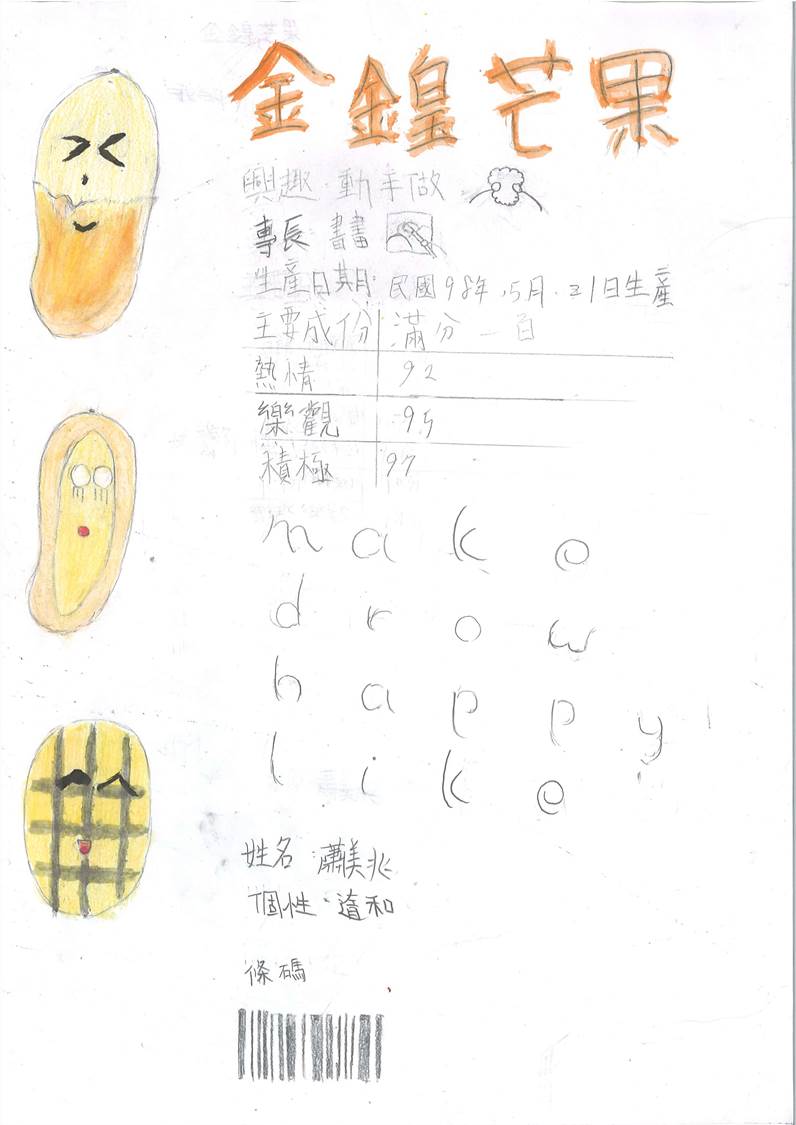 金鍠芒果
興趣.動手做
專長 畫畫
生產日期:民國98年.5月.21日生產
主要成份 滿分一百
熱情 92
樂觀 95
積極 97
make
drow
happy
like
姓名:蕭美兆
個性.隨和
條碼